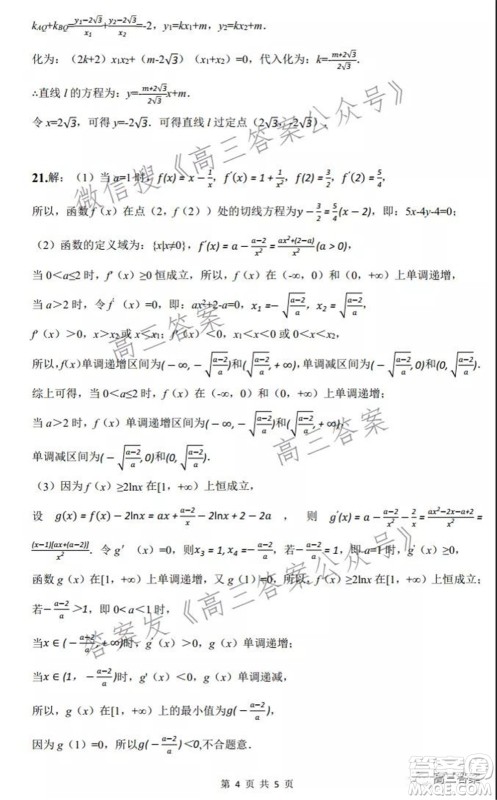 k_AQ+k_BQ=\frac{y₁-2√3}{x₁}+\frac{y₂-2√3}{x₂}=-2，y₁=kx₁+m，y₂=kx₂+m．
化为：（2k+2）x₁x₂+（m-2√3）（x₁+x₂）=0，代入化为：k=-\frac{m+2√3}{2√3}．
∴直线 l 的方程为：y=-\frac{m+2√3}{2√3}x+m．
令 x=2√3，可得 y=-2√3．可得直线 l 过定点（2√3，-2√3）．
21.解：（1）当 a=1 时，f(x)=x-\frac{1}{x}，f′(x)=1+\frac{1}{x²}，f(2)=\frac{3}{2}，f′(2)=\frac{5}{4}，
所以，函数 f（x）在点（2，f（2））处的切线方程为y-\frac{3}{2}=\frac{5}{4}(x-2)，即：5x-4y-4=0；
（2）函数的定义域为：{x|x≠0}，f′(x)=a-\frac{a-2}{x²}=\frac{ax²+(2-a)}{x²}(a>0)，
当 0＜a≤2 时，f′（x）≥0 恒成立，所以，f（x）在（-∞，0）和（0，+∞）上单调递增，
当 a＞2 时，令 f′（x）=0，即：ax²+2-a=0，x₁=-√\frac{a-2}{a}，x₂=√\frac{a-2}{a}，
f′（x）＞0，x＞x₂或 x＜x₁；f′（x）＜0，x₁＜x＜0 或 0＜x＜x₂，
所以，f（x）单调递增区间为(-∞,-√\frac{a-2}{a})和(√\frac{a-2}{a},+∞)，单调减区间为(-√\frac{a-2}{a},0)和(0,√\frac{a-2}{a})．
综上可得，当 0＜a≤2 时，f（x）在（-∞，0）和（0，+∞）上单调递增；
当 a＞2 时，f（x）单调递增区间为(-∞,-√\frac{a-2}{a})和(√\frac{a-2}{a},+∞)，
单调减区间为(-√\frac{a-2}{a},0)和(0,√\frac{a-2}{a})．
（3）因为 f（x）≥2lnx 在[1，+∞）上恒成立，
设 g(x)=f(x)-2lnx=ax+\frac{a-2}{x}-2lnx+2-2a ， 则 g′(x)=a-\frac{a-2}{x²}-\frac{2}{x}=\frac{ax²-2x-a+2}{x²}=
\frac{(x-1)[ax+(a-2)]}{x²}．令 g′（x）=0，则x₃=1,x₄=-\frac{a-2}{a}，若-\frac{a-2}{a}=1，即 a=1 时，g′（x）≥0，
函数 g（x）在[1，+∞）上单调递增，又 g（1）=0，所以，f（x）≥2lnx 在[1，+∞）上恒成立；
若-\frac{a-2}{a}>1，即 0＜a＜1 时，
当x∈(-\frac{a+2}{a},+∞)时，g′（x）＞0，g（x）单调递增；
当x∈(1，-\frac{a-2}{a})时，g′（x）＜0，g（x）单调递减，
所以，g（x）在[1，+∞）上的最小值为g(-\frac{a-2}{a})，
因为 g（1）=0，所以g(-\frac{a-2}{a})<0,不合题意．
第 4 页 共 5 页
微信搜《高三答案公众号》
高三答案
高三答案
答案发《高三答案公众号》
高三答案